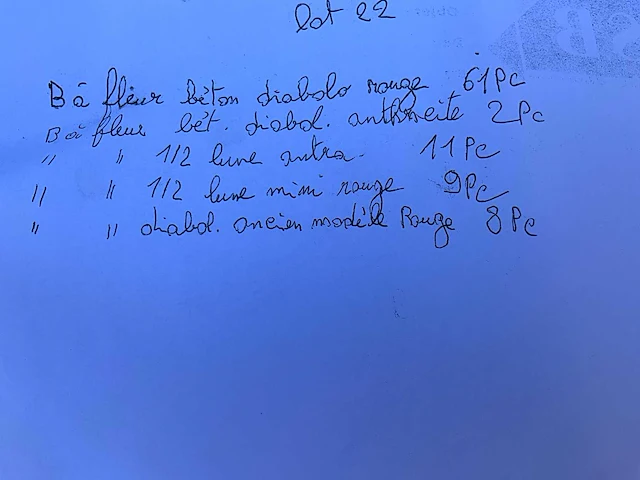 lot 22
B à fleur bèton diabolo rouge 61Pc
B à fleur bét. diabol. anthracite 2Pc
" " 1/2 lune antra. 11Pc
" " 1/2 lune mini rouge 9Pc
" " diabol. ancien modèle Rouge 8Pc